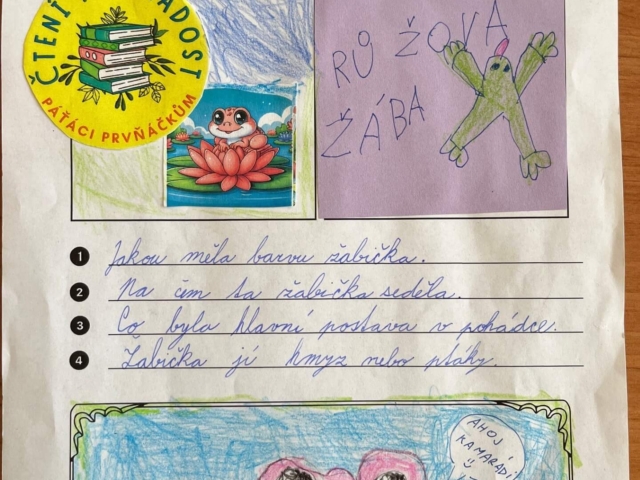 ČTENÍ RADOST
PÁŤÁCI PRVŇÁČKŮM
RŮŽOVÁ
ŽÁBA
1 Jakou měla barvu žabička.
2 Na čem ta žabička seděla.
3 Co byla hlavní postava v pohádce.
4 Žabička jí hmyz nebo ptáky.
AHOJ
KAMARÁDI